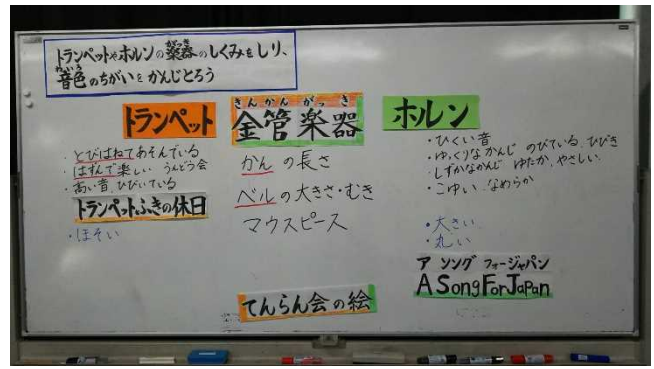 トランペットやホルンの楽器のしくみをしり、
音色のちがいをかんじとろう
トランペット
・とびはねてあそんでいる
・はずんで楽しい うんどう会
・高い音、ひびいている
トランペットふきの休日
・ほそい
きんかんがっき
金管楽器
かんの長さ
ベルの大きさ・むき
マウスピース
てんらん会の絵
ホルン
・ひくい音
・ゆっくりなかんじ のびている、ひびき
しずかなかんじ ゆたか、やさしい
・こゆい、なめらか
・大きい
・丸い
ア ソング フォージャパン
A Song For Japan